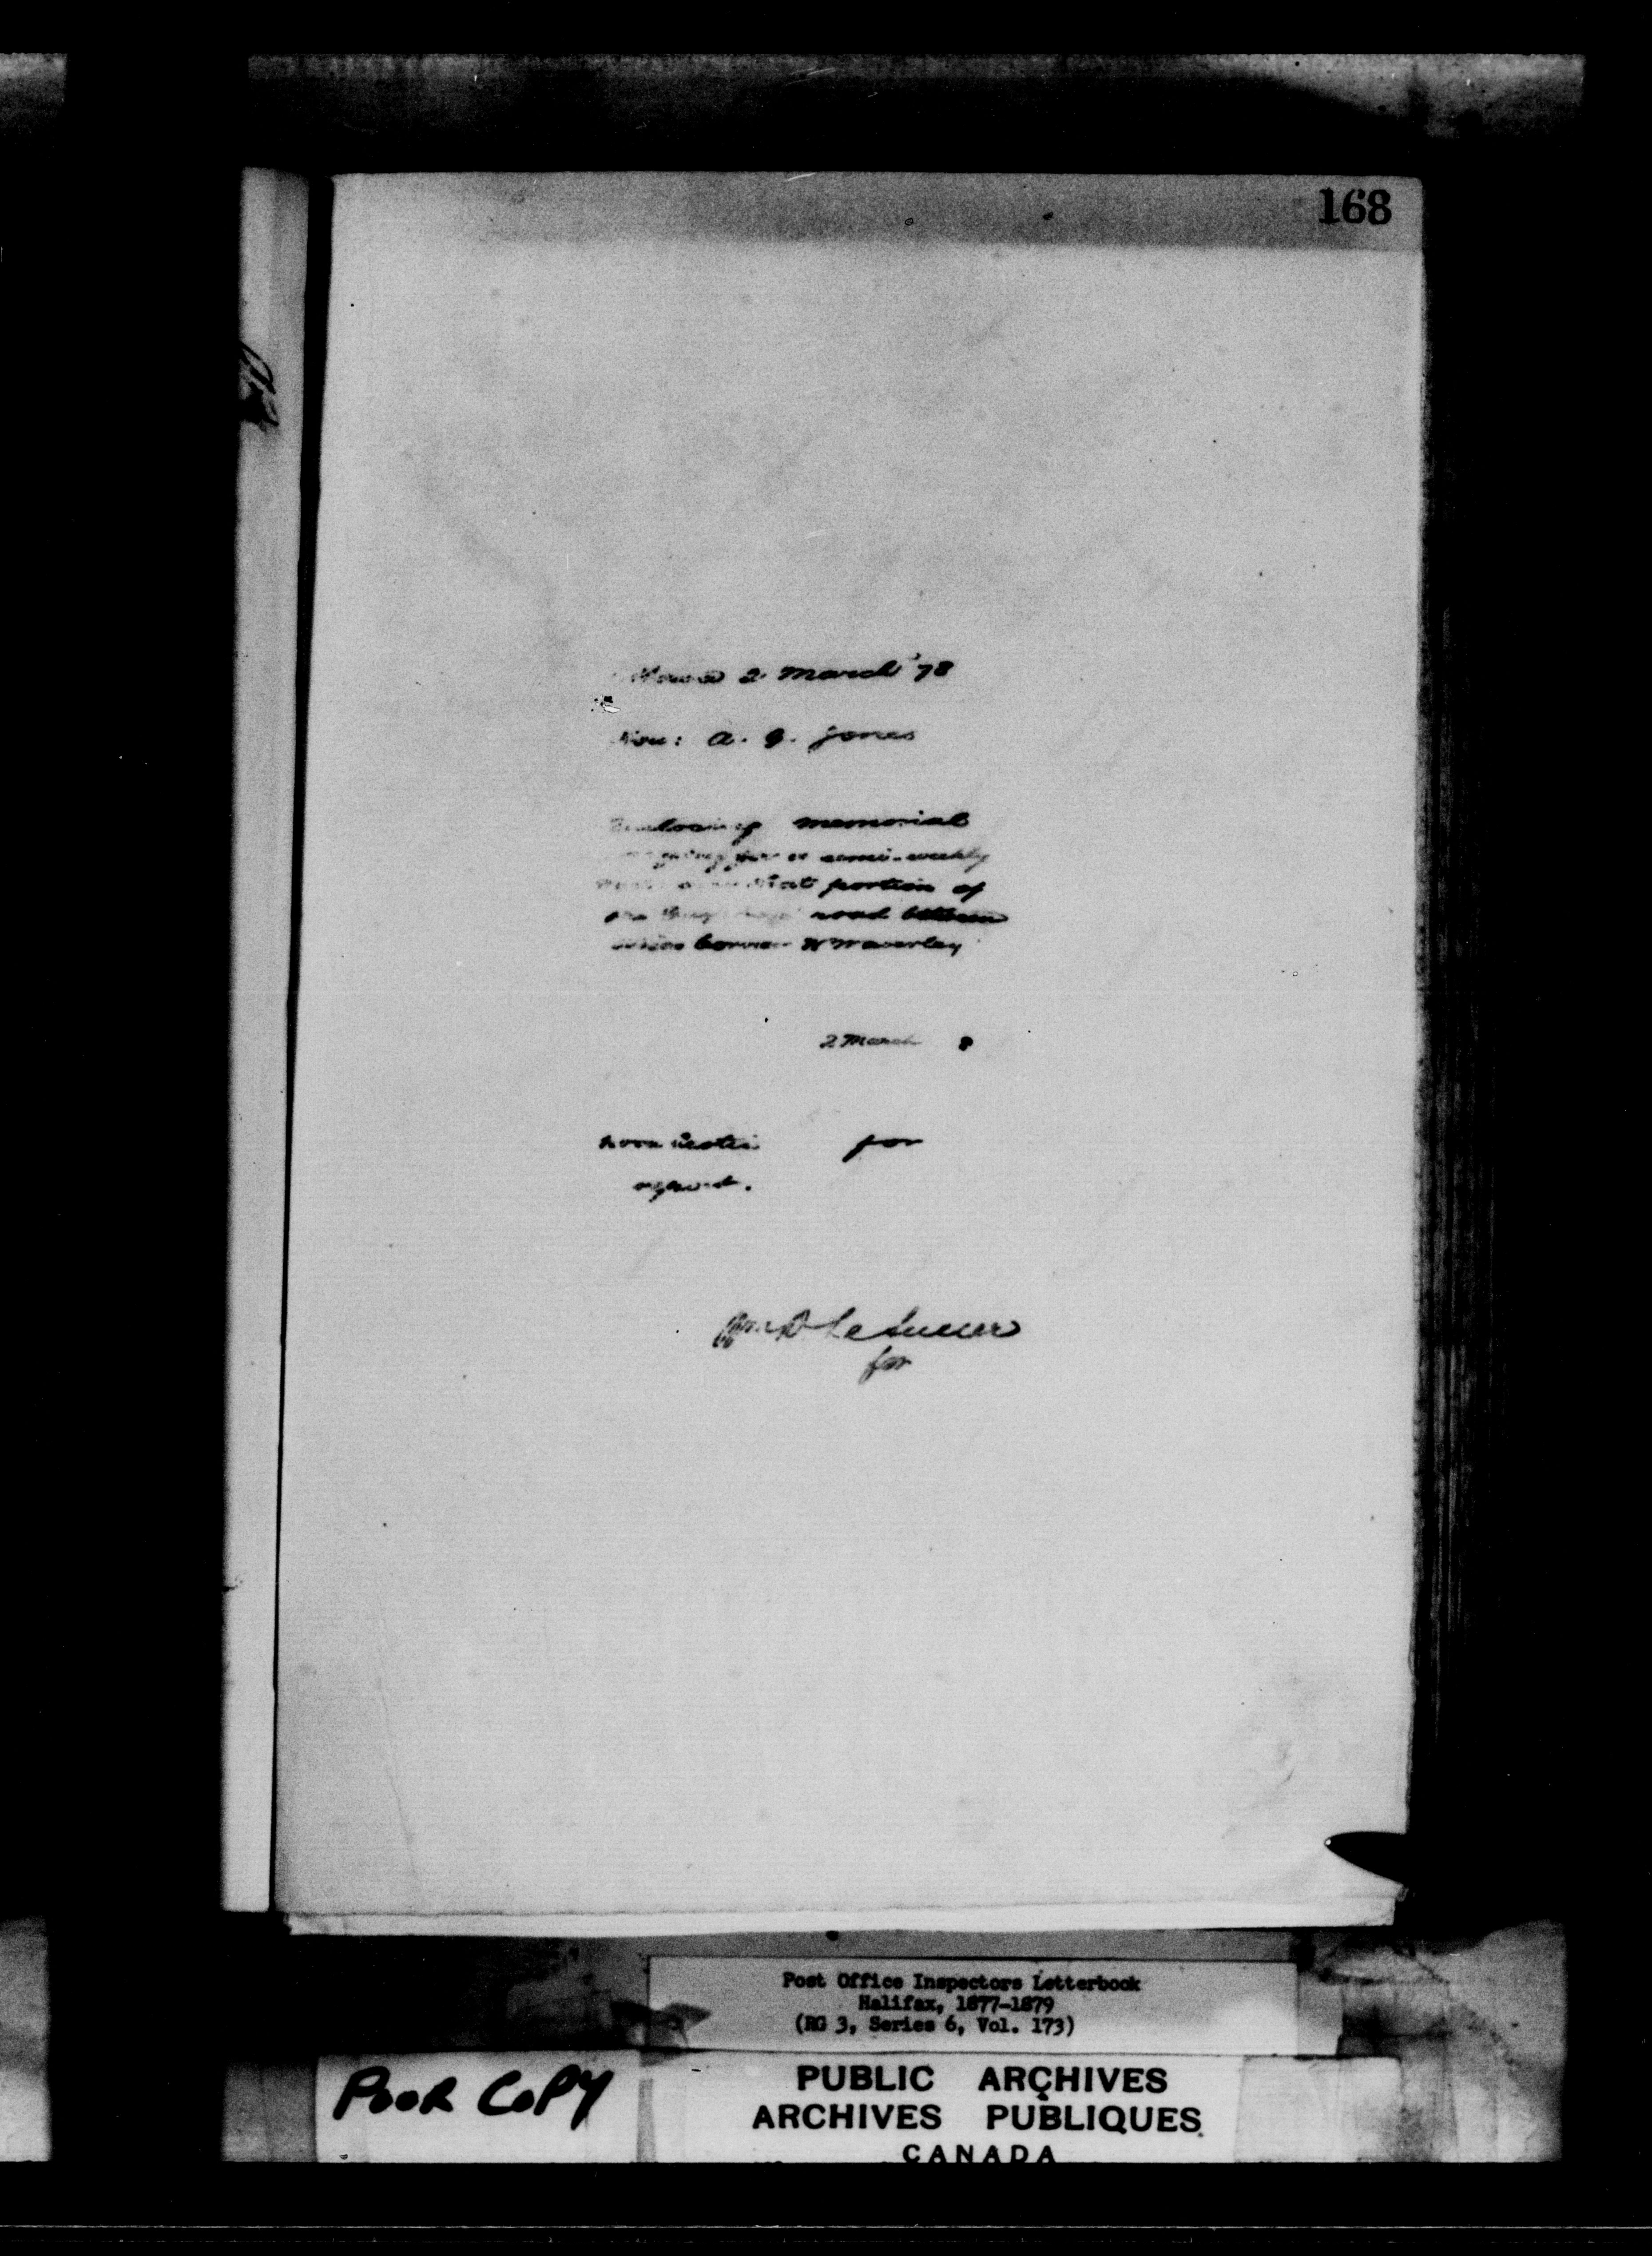 168
2 March '78
Hon: A. G. Jones
Enclosing memorial
for a semi-weekly
that portion of
road between
Corner & Waverley
2 March 8
Nova Scotia for
report.
Wm D LeSueur
for
Post Office Inspectors Letterbook
Halifax, 1877-1879
(RG 3, Series 6, Vol. 173)
POOR COPY
PUBLIC ARCHIVES
ARCHIVES PUBLIQUES
CANADA